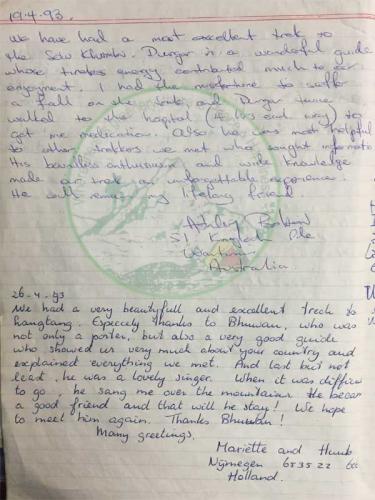 19.4.93.
We have had a most excellent trek to
the Solu Khumbu. Durga is a wonderful guide
whose tireless energy contributed much to our
enjoyment. I had the misfortune to suffer
a fall on the trek, and Durga twice
walked to the hospital (4 hrs each way) to
get me medication. Also he was most helpful
to other trekkers we met who sought informatio
His boundless enthusiasm and wide knowledge
made our trek an unforgettable experience.
He will remain my lifelong friend.
Ashley
51
Australia
26-4-93
We had a very beautyfull and excellent treck to
Langtang. Especely thanks to Bhuwan, who was
not only a porter, but also a very good guide
who showed us very much about your country and
explained everything we met. And last but not
least, he was a lovely singer. When it was difficu
to go, he sang me over the mountains. He becam
a good friend and that will he stay! We hope
to meet him again. Thanks Bhuwan!
Many greetings.
Mariëtte and Huub
Nijmegen 6535 22
Holland.